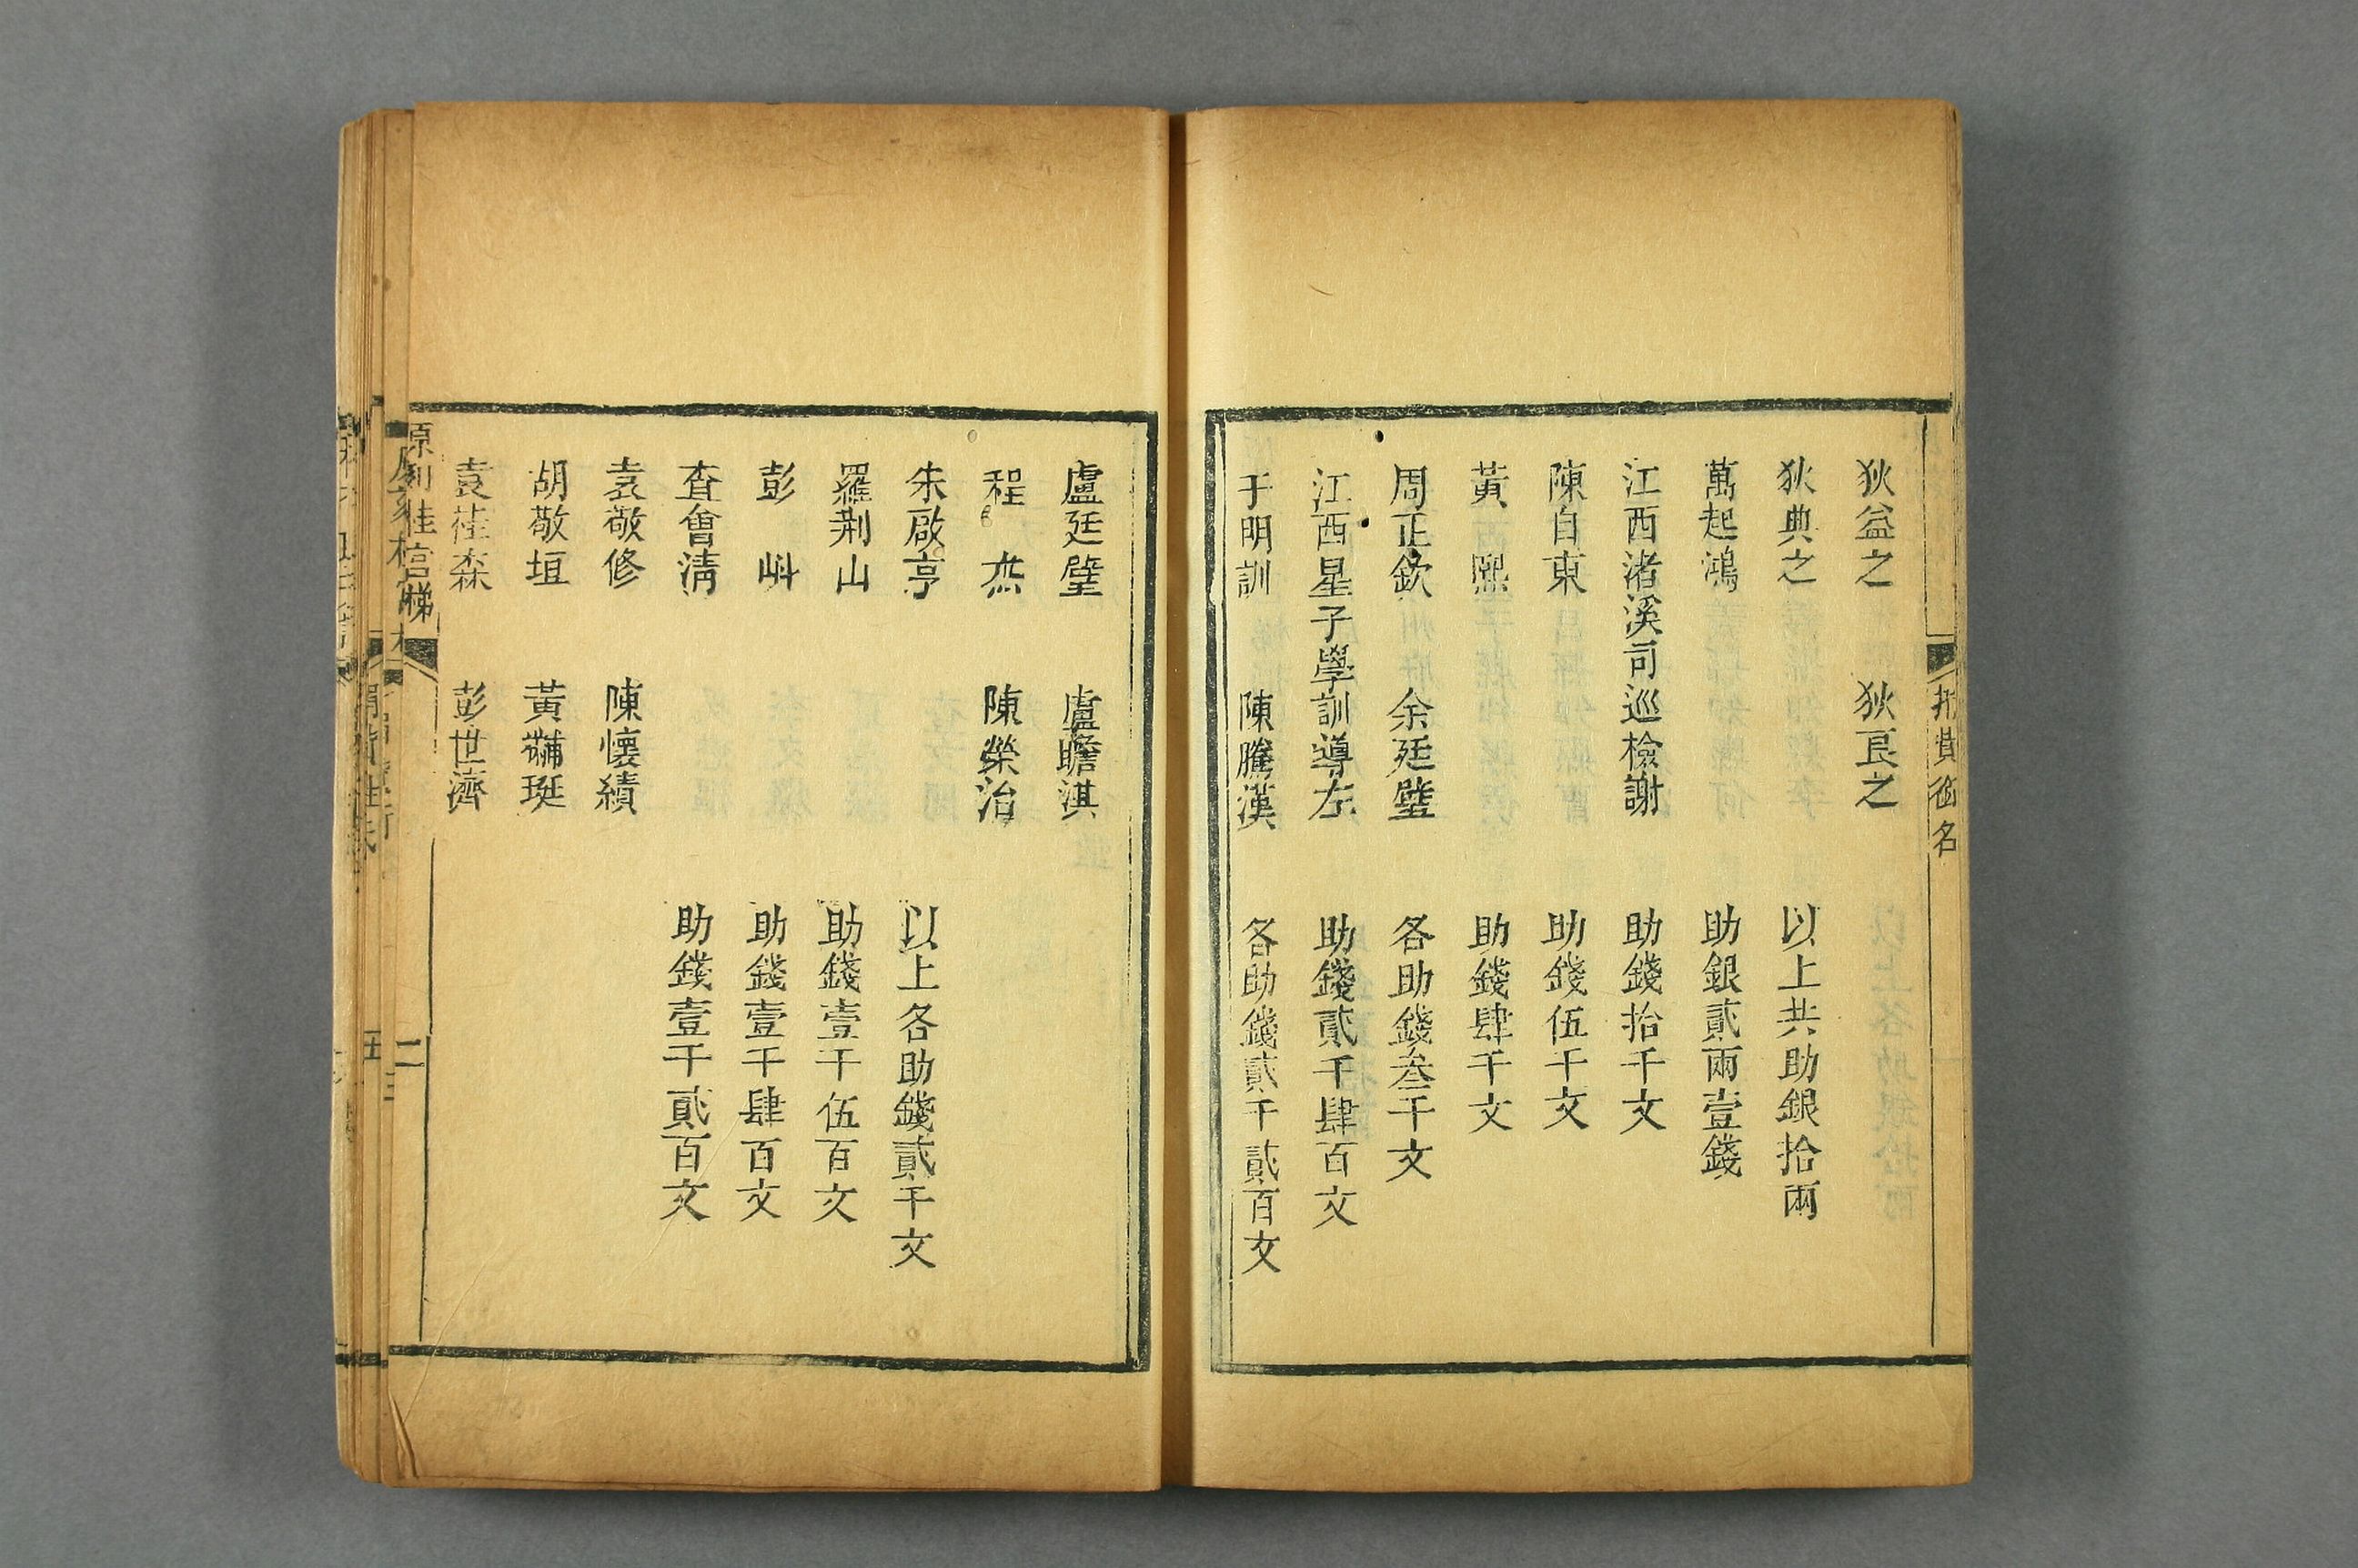 捐貲銜名
狄益之 狄良之
狄典之 以上共助銀拾兩
萬起鴻 助銀貳兩壹錢
江西渚溪司巡檢謝 助錢拾千文
陳自東 助錢伍千文
黃熙 助錢肆千文
周正欽 余廷璧 各助錢叁千文
江西星子學訓導左 助錢貳千肆百文
于明訓 陳騰漢 各助錢貳千貳百文
盧廷璧 盧瞻淇
程杰 陳榮治
朱啟亨 以上各助錢貳千文
羅荆山 助錢壹千伍百文
彭 助錢壹千肆百文
查會清 助錢壹千貳百文
袁敬修 陳懷績
胡敬垣 黃黼珽
袁桂森 彭世濟
原刻桂宮梯
二